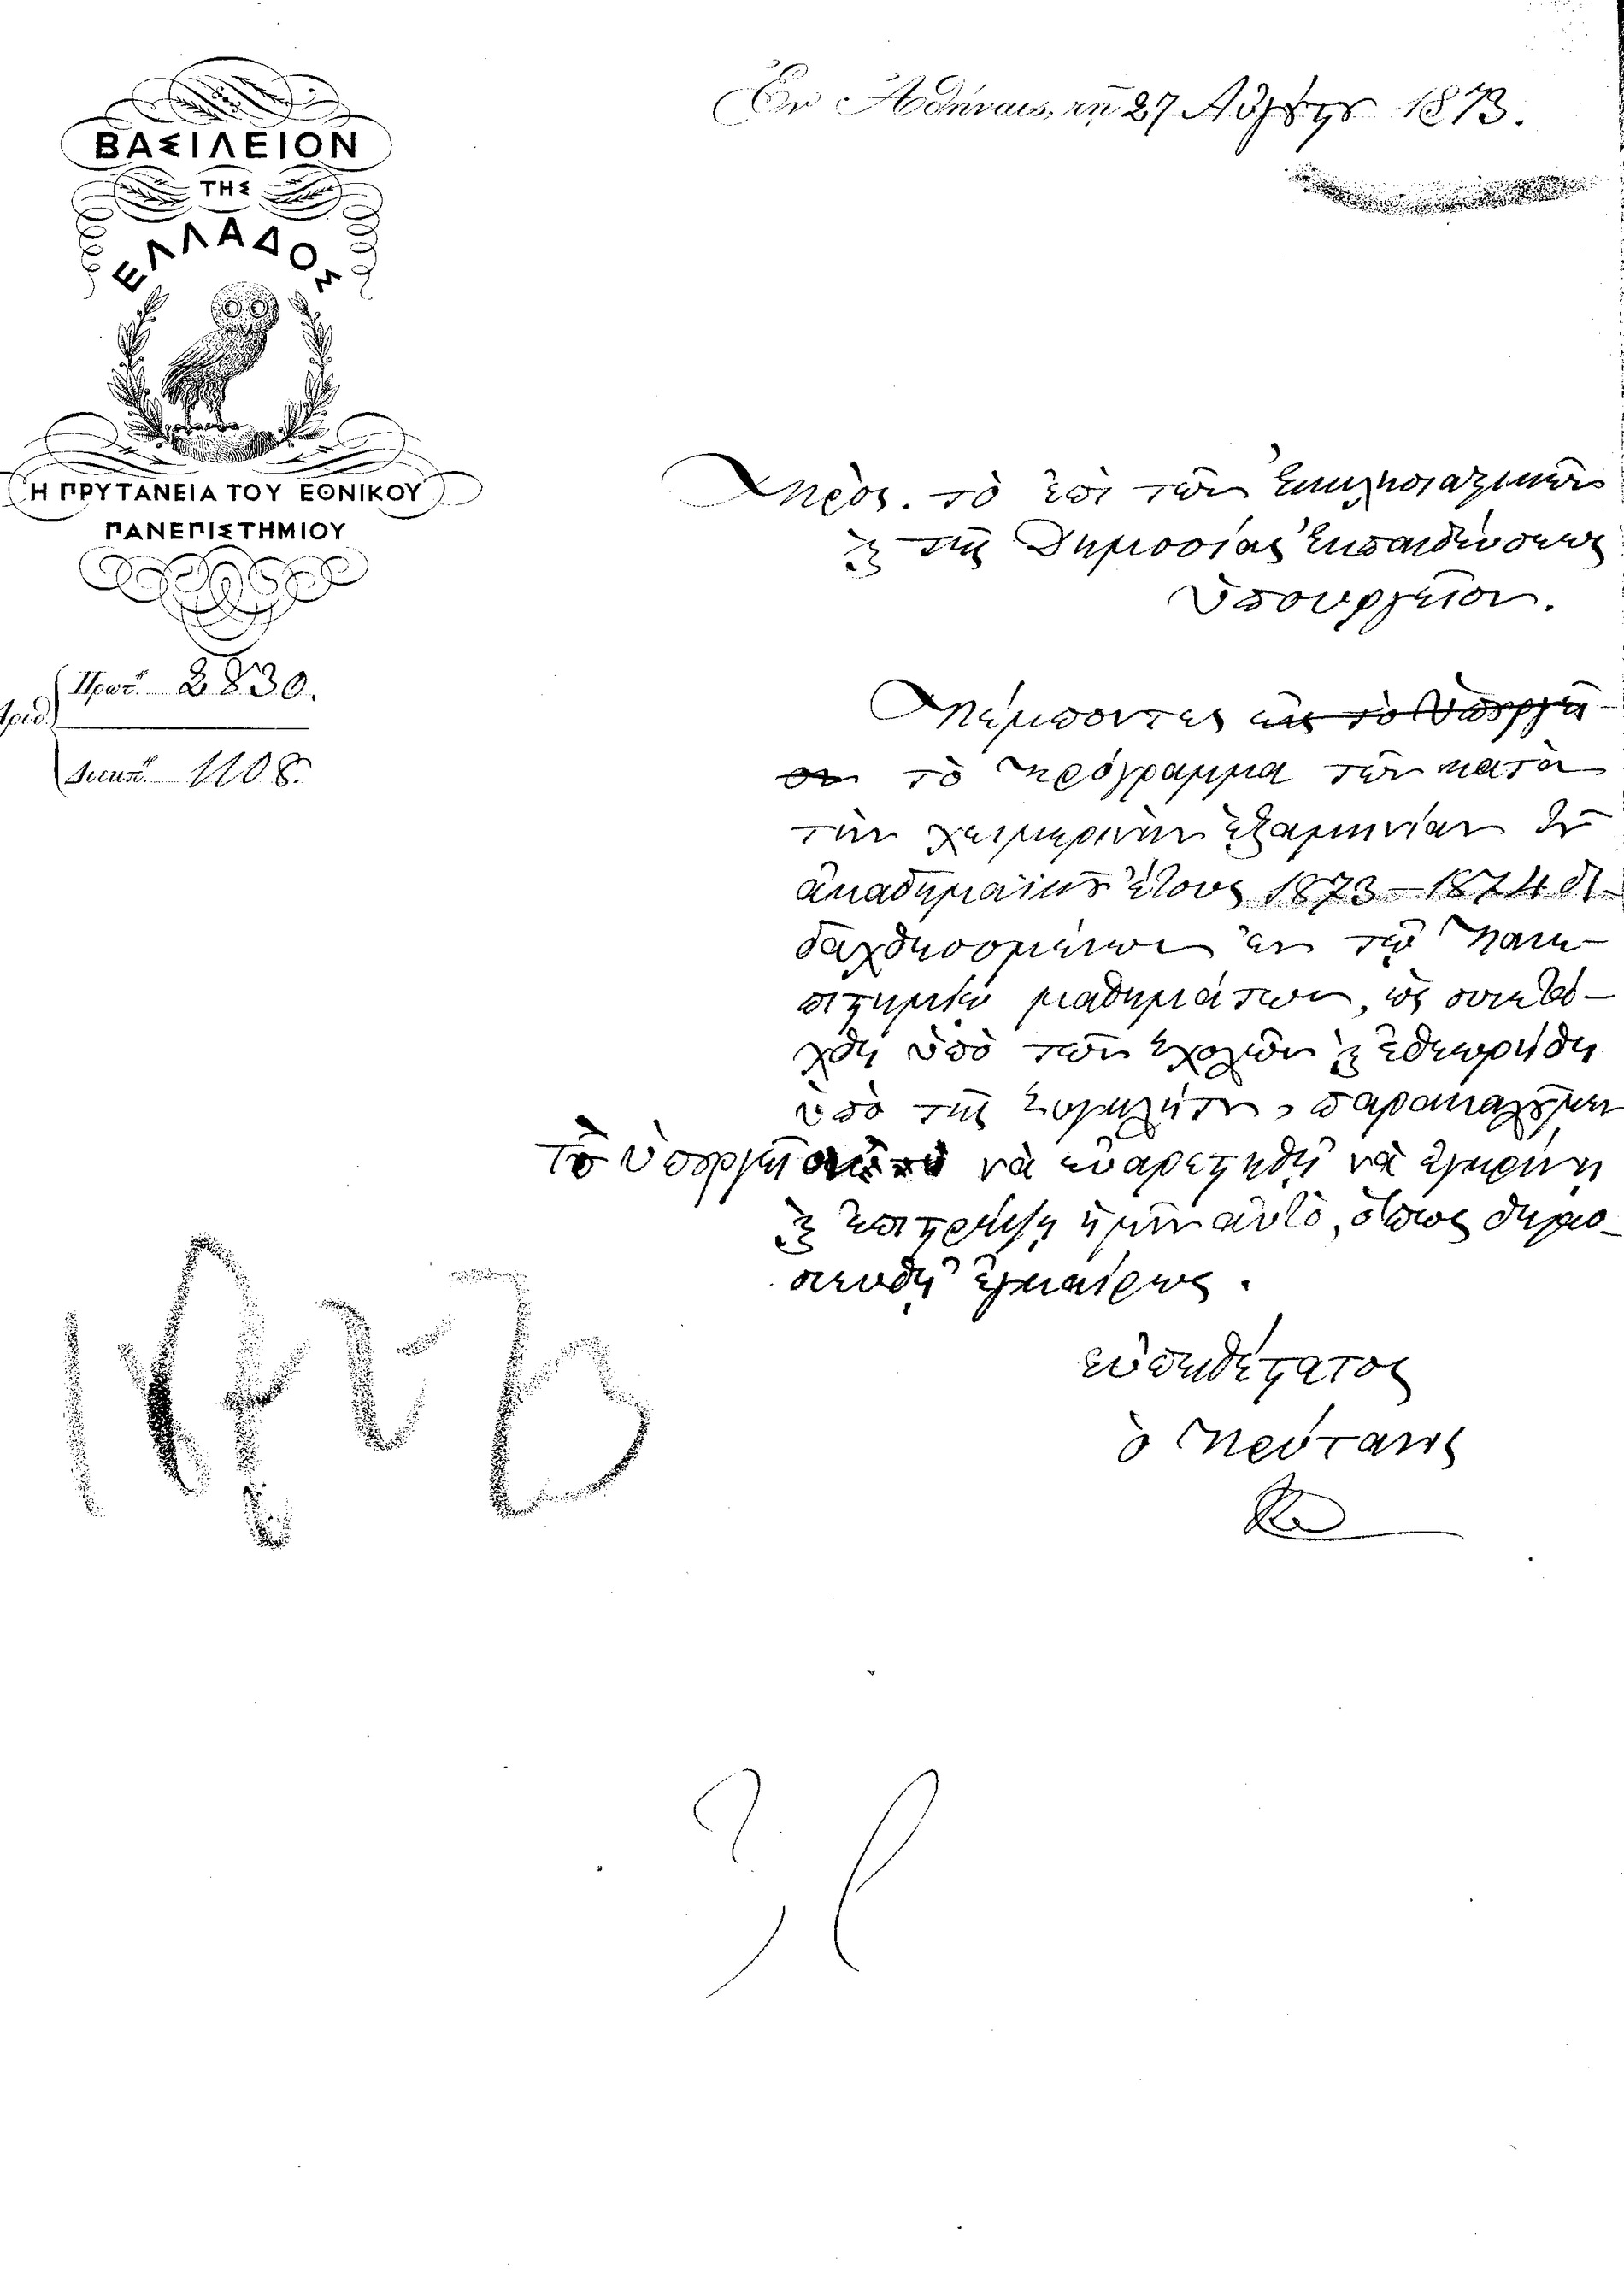 ΒΑΣΙΛΕΙΟΝ
ΤΗΣ
ΕΛΛΑΔΟΣ
Η ΠΡΥΤΑΝΕΙΑ ΤΟΥ ΕΘΝΙΚΟΥ
ΠΑΝΕΠΙΣΤΗΜΙΟΥ
Ἀριθ.
Πρωτ. 2830.
Διεκπ. 1108.
Ἐν Ἀθήναις, τῇ 27 Αὐγούστου 1873.
Πρὸς τὸ ἐπὶ τῶν Ἐκκλησιαστικῶν
ϗ τῆς Δημοσίας Ἐκπαιδεύσεως
Ὑπουργεῖον.
Πέμποντες εἰς τὸ Ὑπουργεῖ-
ον τὸ πρόγραμμα τῶν κατὰ
τὴν χειμερινὴν ἑξαμηνίαν τοῦ
ἀκαδημαϊκοῦ ἔτους 1873–1874 δι-
δαχθησομένων ἐν τῷ Πανε-
πιστημίῳ μαθημάτων, ὡς συνετά-
χθη ὑπὸ τῶν Σχολῶν ϗ ἐθεωρήθη
ὑπὸ τῆς Συγκλήτου, παρακαλοῦμεν
τὸ Ὑπουργεῖον νὰ εὐαρεστηθῇ νὰ ἐγκρίνῃ
ϗ ἐπιστρέψῃ ἡμῖν αὐτὸ, ὅπως δημο-
σιευθῇ ἐγκαίρως.
εὐπειθέστατος
ὁ Πρύτανις